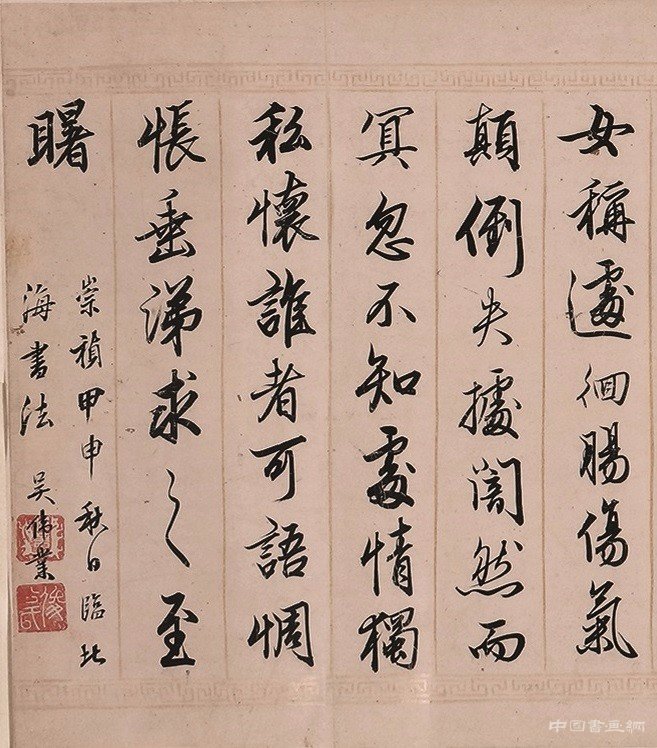 女稱遽徊腸傷氣
顛倒失據闇然而
冥忽不知處情獨
私懷誰者可語惆
悵垂涕求之至
曙
崇禎甲申秋日臨北
海書法 吴偉業
中国書画網